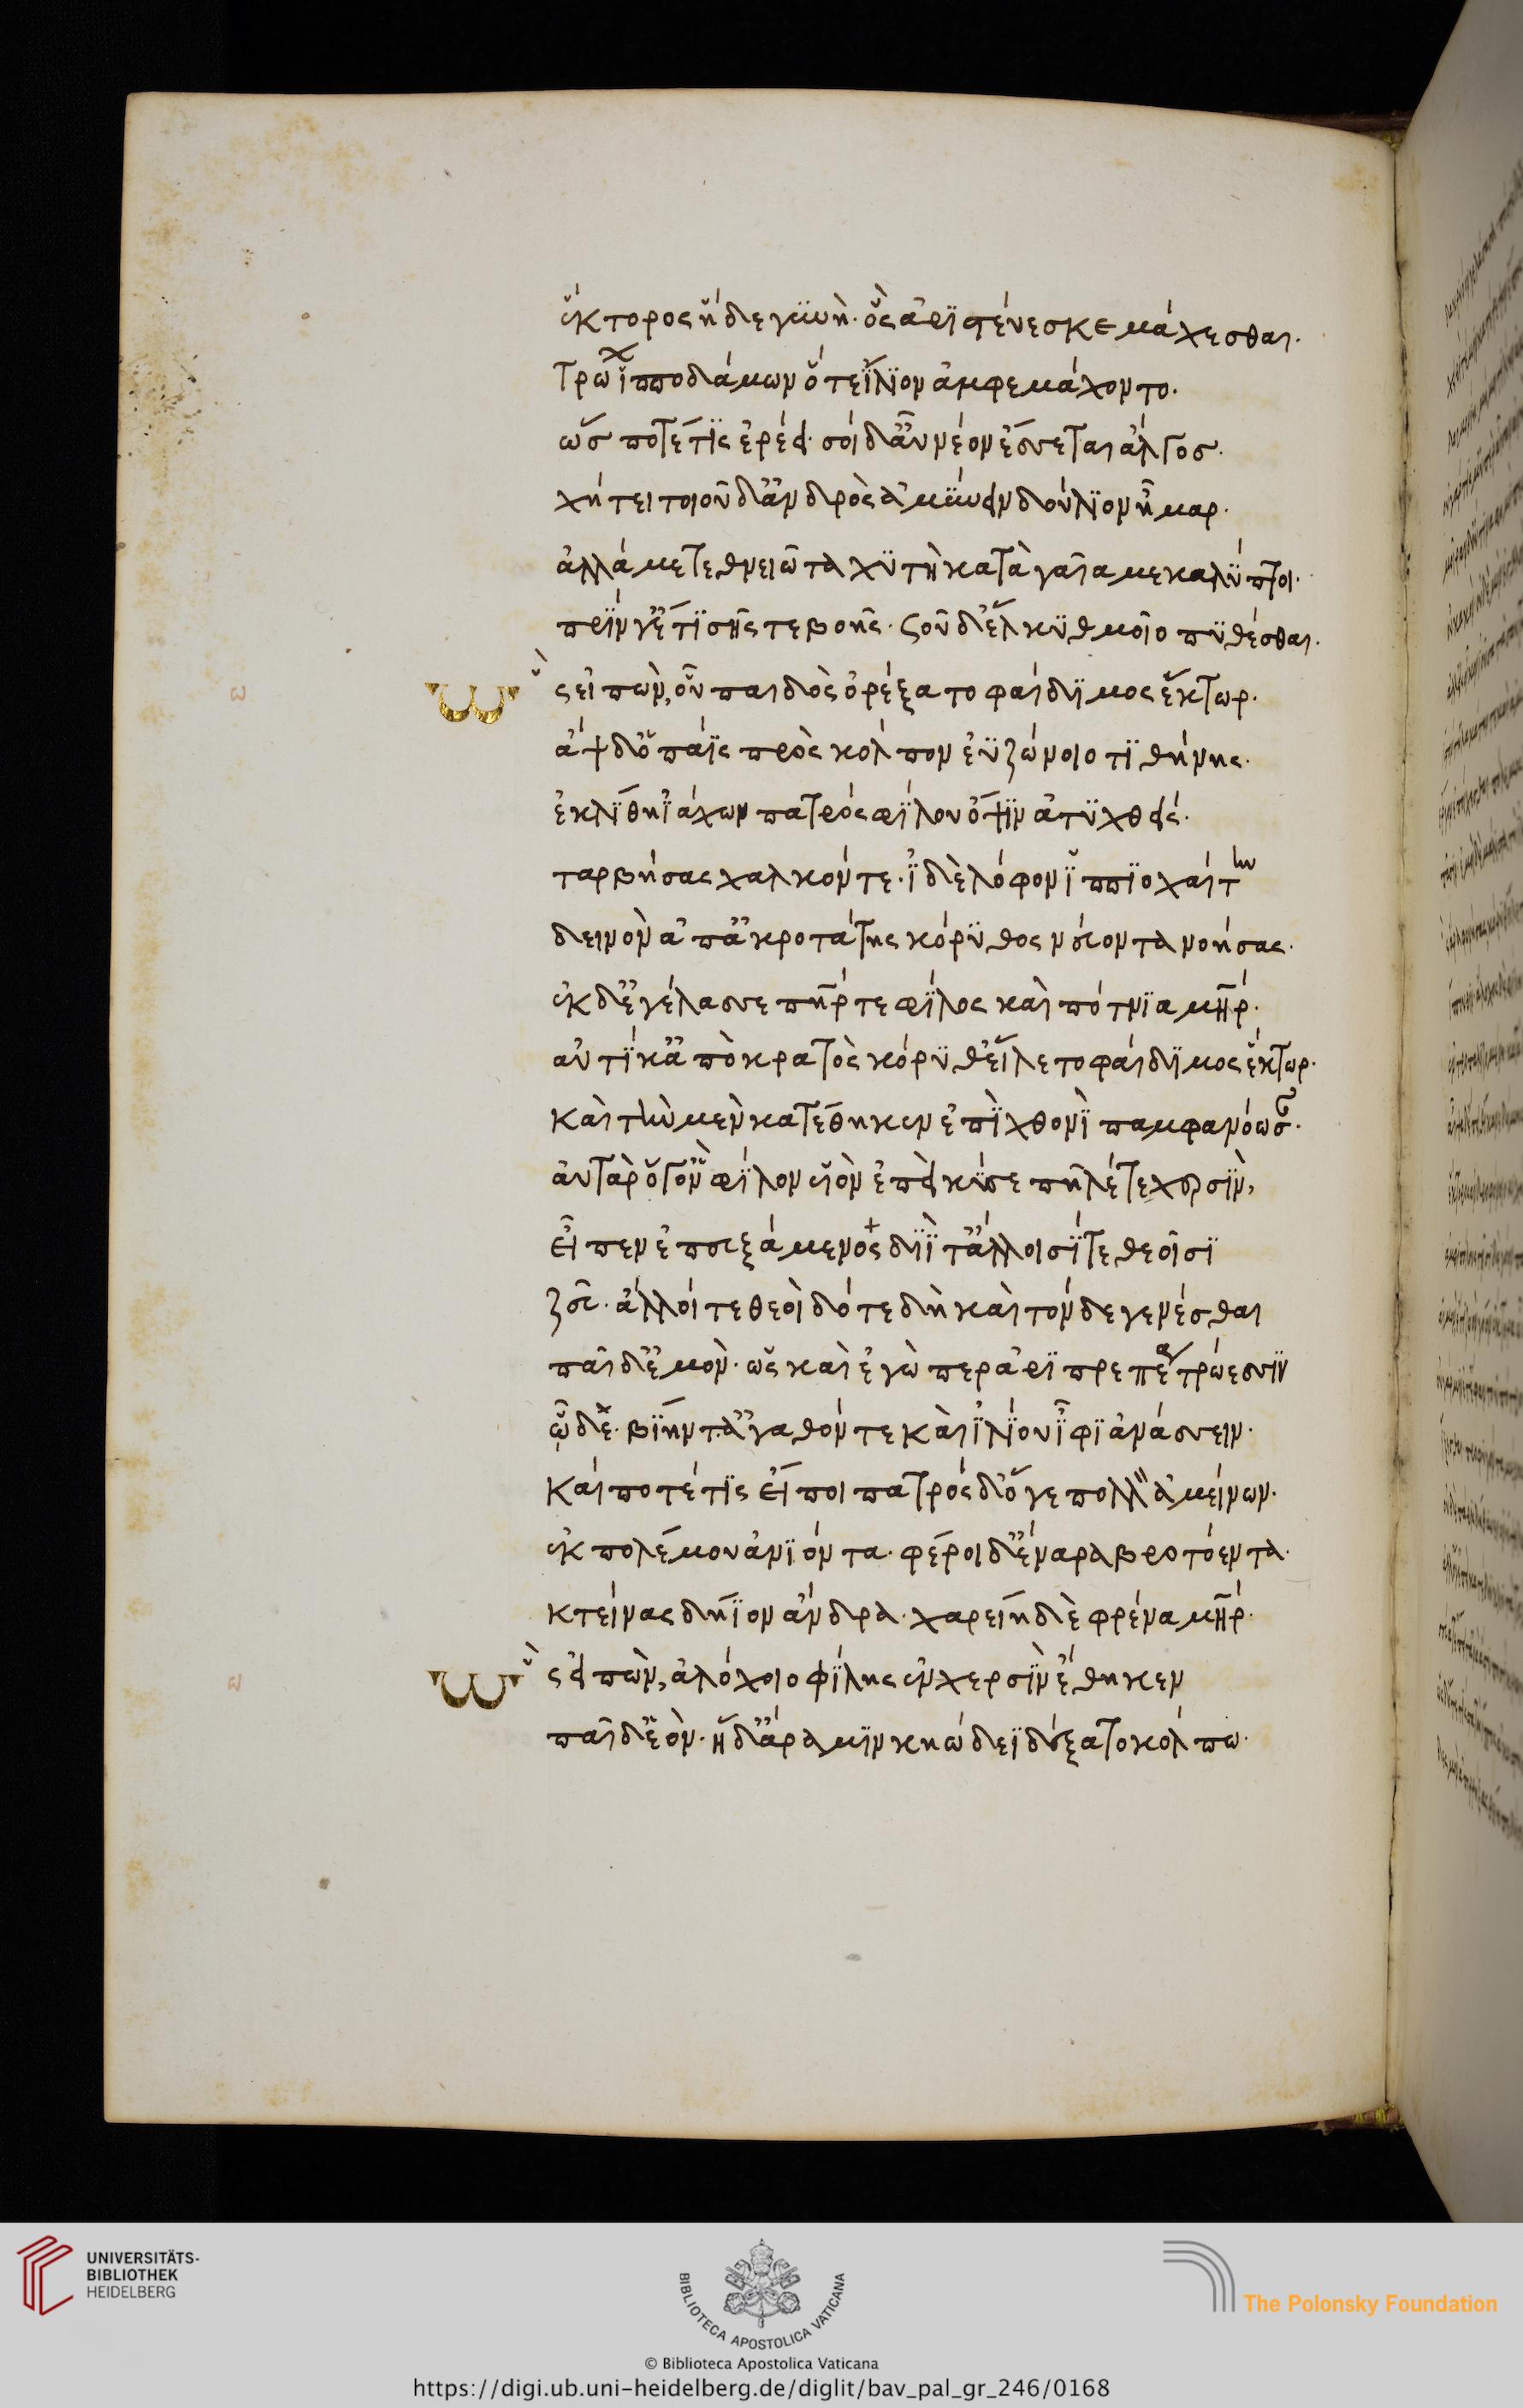 ἕκτορος ἥδε γυνὴ· ὃς ἀριστεύεσκε μάχεσθαι·
Τρώων ἱπποδάμων ὅτε ἴλιον ἀμφεμάχοντο·
ὥς ποτέ τις ἐρέει· σοὶ δ' αὖ νέον ἔσσεται ἄλγος·
χήτει τοιοῦδ' ἀνδρὸς ἀμύνειν δούλιον ἦμαρ·
ἀλλά με τεθνειῶτα χυτὴ κατὰ γαῖα με καλύπτοι·
πρίν γ' ἔτι σῆς τε βοῆς· σοῦ θ' ἑλκυθμοῖο πυθέσθαι·
Ὣς εἰπὼν, οὗ παιδὸς ὀρέξατο φαίδιμος ἕκτωρ·
ἂψ δ' ὁ πάϊς πρὸς κόλπον ἐϋζώνοιο τιθήνης·
ἐκλίθη ἰάχων πατρὸς φίλου ὄψιν ἀτυχθείς·
ταρβήσας χαλκόν τε· ἰδὲ λόφον ἱππιοχαίτην
δεινὸν ἀπ' ἀκροτάτης κόρυθος νεύοντα νοήσας·
ἐκ δ' ἐγέλασσε πηρ τε φίλος καὶ πότνια μηρ·
αὐτίκ' ἀπὸ κρατὸς κόρυθ' εἵλετο φαίδιμος ἕκτωρ·
καὶ τὴν μὲν κατέθηκεν ἐπὶ χθονὶ παμφανόωσαν·
αὐτὰρ ὅγ' ὃν φίλον υἱὸν ἐπεὶ κύσε πῆλέ τε χερσὶν,
εἶπεν ἐπευξάμενος διΐ τ' ἄλλοισί τε θεοῖσι
ζεῦ· ἄλλοι τε θεοὶ δότε δὴ καὶ τόνδε γενέσθαι
παῖδ' ἐμὸν· ὡς καὶ ἐγὼ περ ἀριπρεπέα τρώεσσιν
ὧδε· βίην τ' ἀγαθόν τε καὶ ἰλίου ἶφι ἀνάσσειν·
καί ποτέ τις εἴποι πατρός δ' ὅγε πολλὸν ἀμείνων·
ἐκ πολέμου ἀνιόντα· φέροι δ' ἔναρα βροτόεντα·
κτείνας δήϊον ἄνδρα· χαρείη δὲ φρένα μηρ·
Ὣς εἰπὼν, ἀλόχοιο φίλης ἐν χερσὶν ἔθηκεν
παῖδ' ἑὸν· ἡ δ' ἄρα μιν κηώδεϊ δέξατο κόλπω·
ω
ω
UNIVERSITÄTS-
BIBLIOTHEK
HEIDELBERG
BIBLIOTECA APOSTOLICA VATICANA
The Polonsky Foundation
© Biblioteca Apostolica Vaticana
https://digi.ub.uni-heidelberg.de/diglit/bav_pal_gr_246/0168